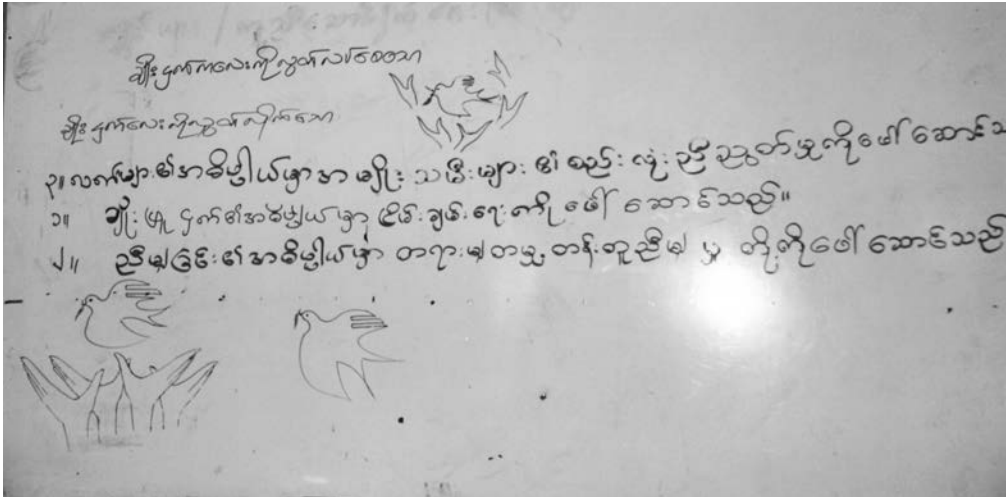 ချိုးငှက်ကလေးကိုလွှတ်လပ်စေသော
ချိုးငှက်လေးကိုလွှတ်လိုက်သော
၃။ လက်များ၏အဓိပ္ပါယ်မှာ အမျိုးသမီးများ၏ စည်းလုံးညီညွတ်မှုကိုဖေါ်ဆောင်
၁။ ချိုးဖြူငှက်၏အဓိပ္ပါယ်မှာ ငြိမ်းချမ်းရေးကို ဖေါ်ဆောင်သည်။
၂။ ညီမျှခြင်း၏အဓိပ္ပါယ်မှာ တရားမျှတမှု့ တန်းတူညီမျှမှု တို့ကိုဖေါ်ဆောင်သည်